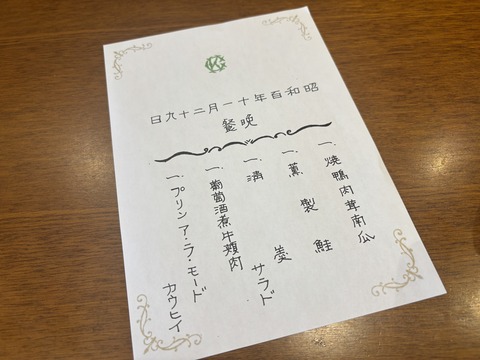 昭和百年十一月二十九日
晩餐
一、焼鴨肉茸南瓜
一、薫製鮭
一、清羹 サラド
一、葡萄酒煮牛頬肉
一、プリンア・ラ・モード カウヒイ